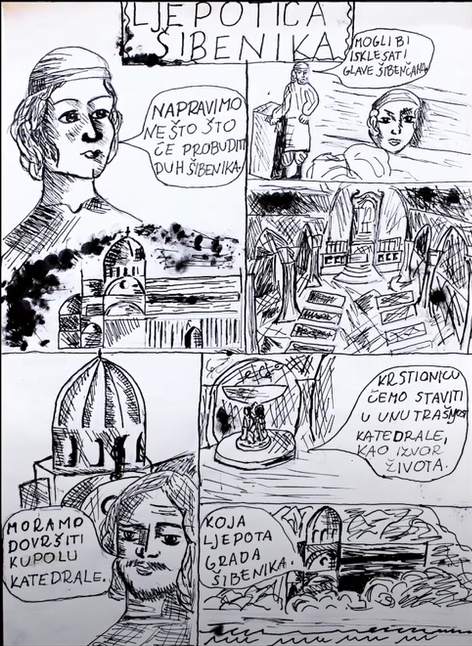 LJEPOTICA
ŠIBENIKA
NAPRAVIMO
NEŠTO ŠTO
ĆE PROBUDITI
DUH ŠIBENIKA!
MOGLI BI
ISKLESATI
GLAVE ŠIBENČANA.
KRSTIONICU
ĆEMO STAVITI
U UNUTRAŠNJOST
KATEDRALE,
KAO IZVOR
ŽIVOTA.
MORAMO
DOVRŠITI
KUPOLU
KATEDRALE.
KOJA
LJEPOTA
GRADA
ŠIBENIKA.